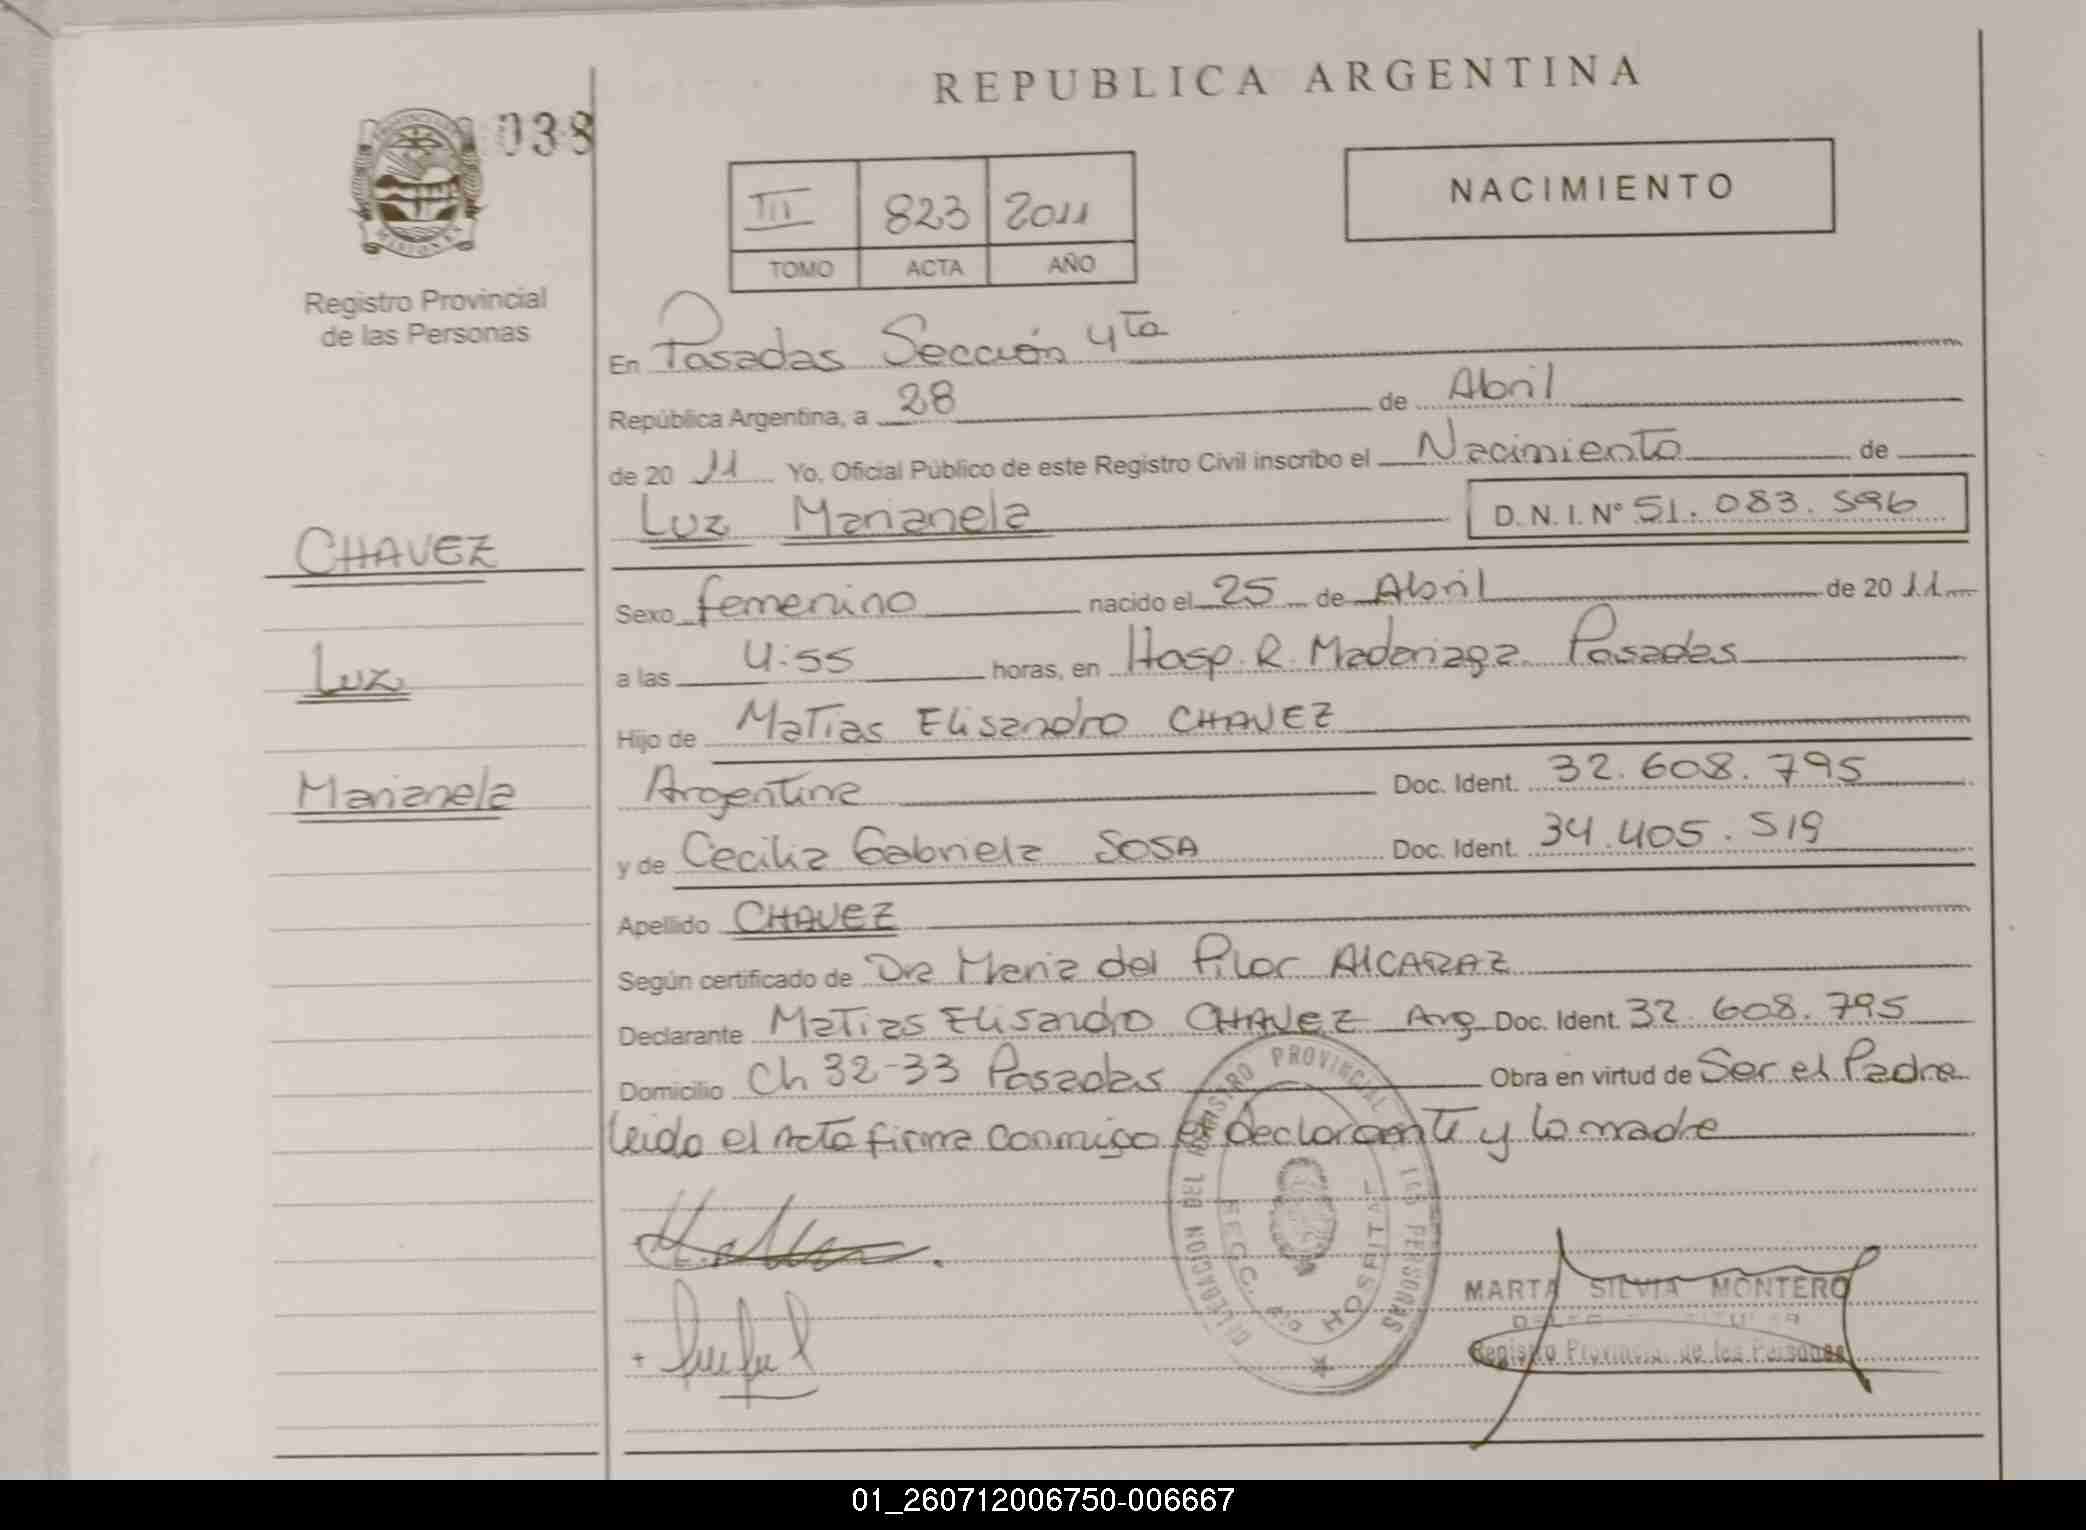 REPUBLICA ARGENTINA
038
NACIMIENTO
III 823 2011
TOMO ACTA AÑO
Registro Provincial
de las Personas
En Posadas Sección 4ta
República Argentina, a 28 de Abril
de 20 11 Yo, Oficial Público de este Registro Civil inscribo el Nacimiento de
Luz Marianela D.N.I. Nº 51.083.596
CHAVEZ
Luz
Marianela
Sexo femenino nacido el 25 de Abril de 20 11
a las 4:55 horas, en Hosp. R. Madariaga Posadas
Hijo de Matias Elisandro CHAVEZ
Argentina Doc. Ident. 32.608.795
y de Cecilia Gabriela SOSA Doc. Ident. 34.405.519
Apellido CHAVEZ
Según certificado de Dra Maria del Pilar ALCARAZ
Declarante Matias Elisandro CHAVEZ Arg Doc. Ident. 32.608.795
Domicilio Ch 32-33 Posadas Obra en virtud de Ser el Padre
leido el Acta firma conmigo el declarante y la madre
DELEGACION DEL REGISTRO PROVINCIAL DE LAS PERSONAS
SECC. HOSPITAL
MARTA SILVIA MONTERO
Registro Provincial de las Personas
01_260712006750-006667